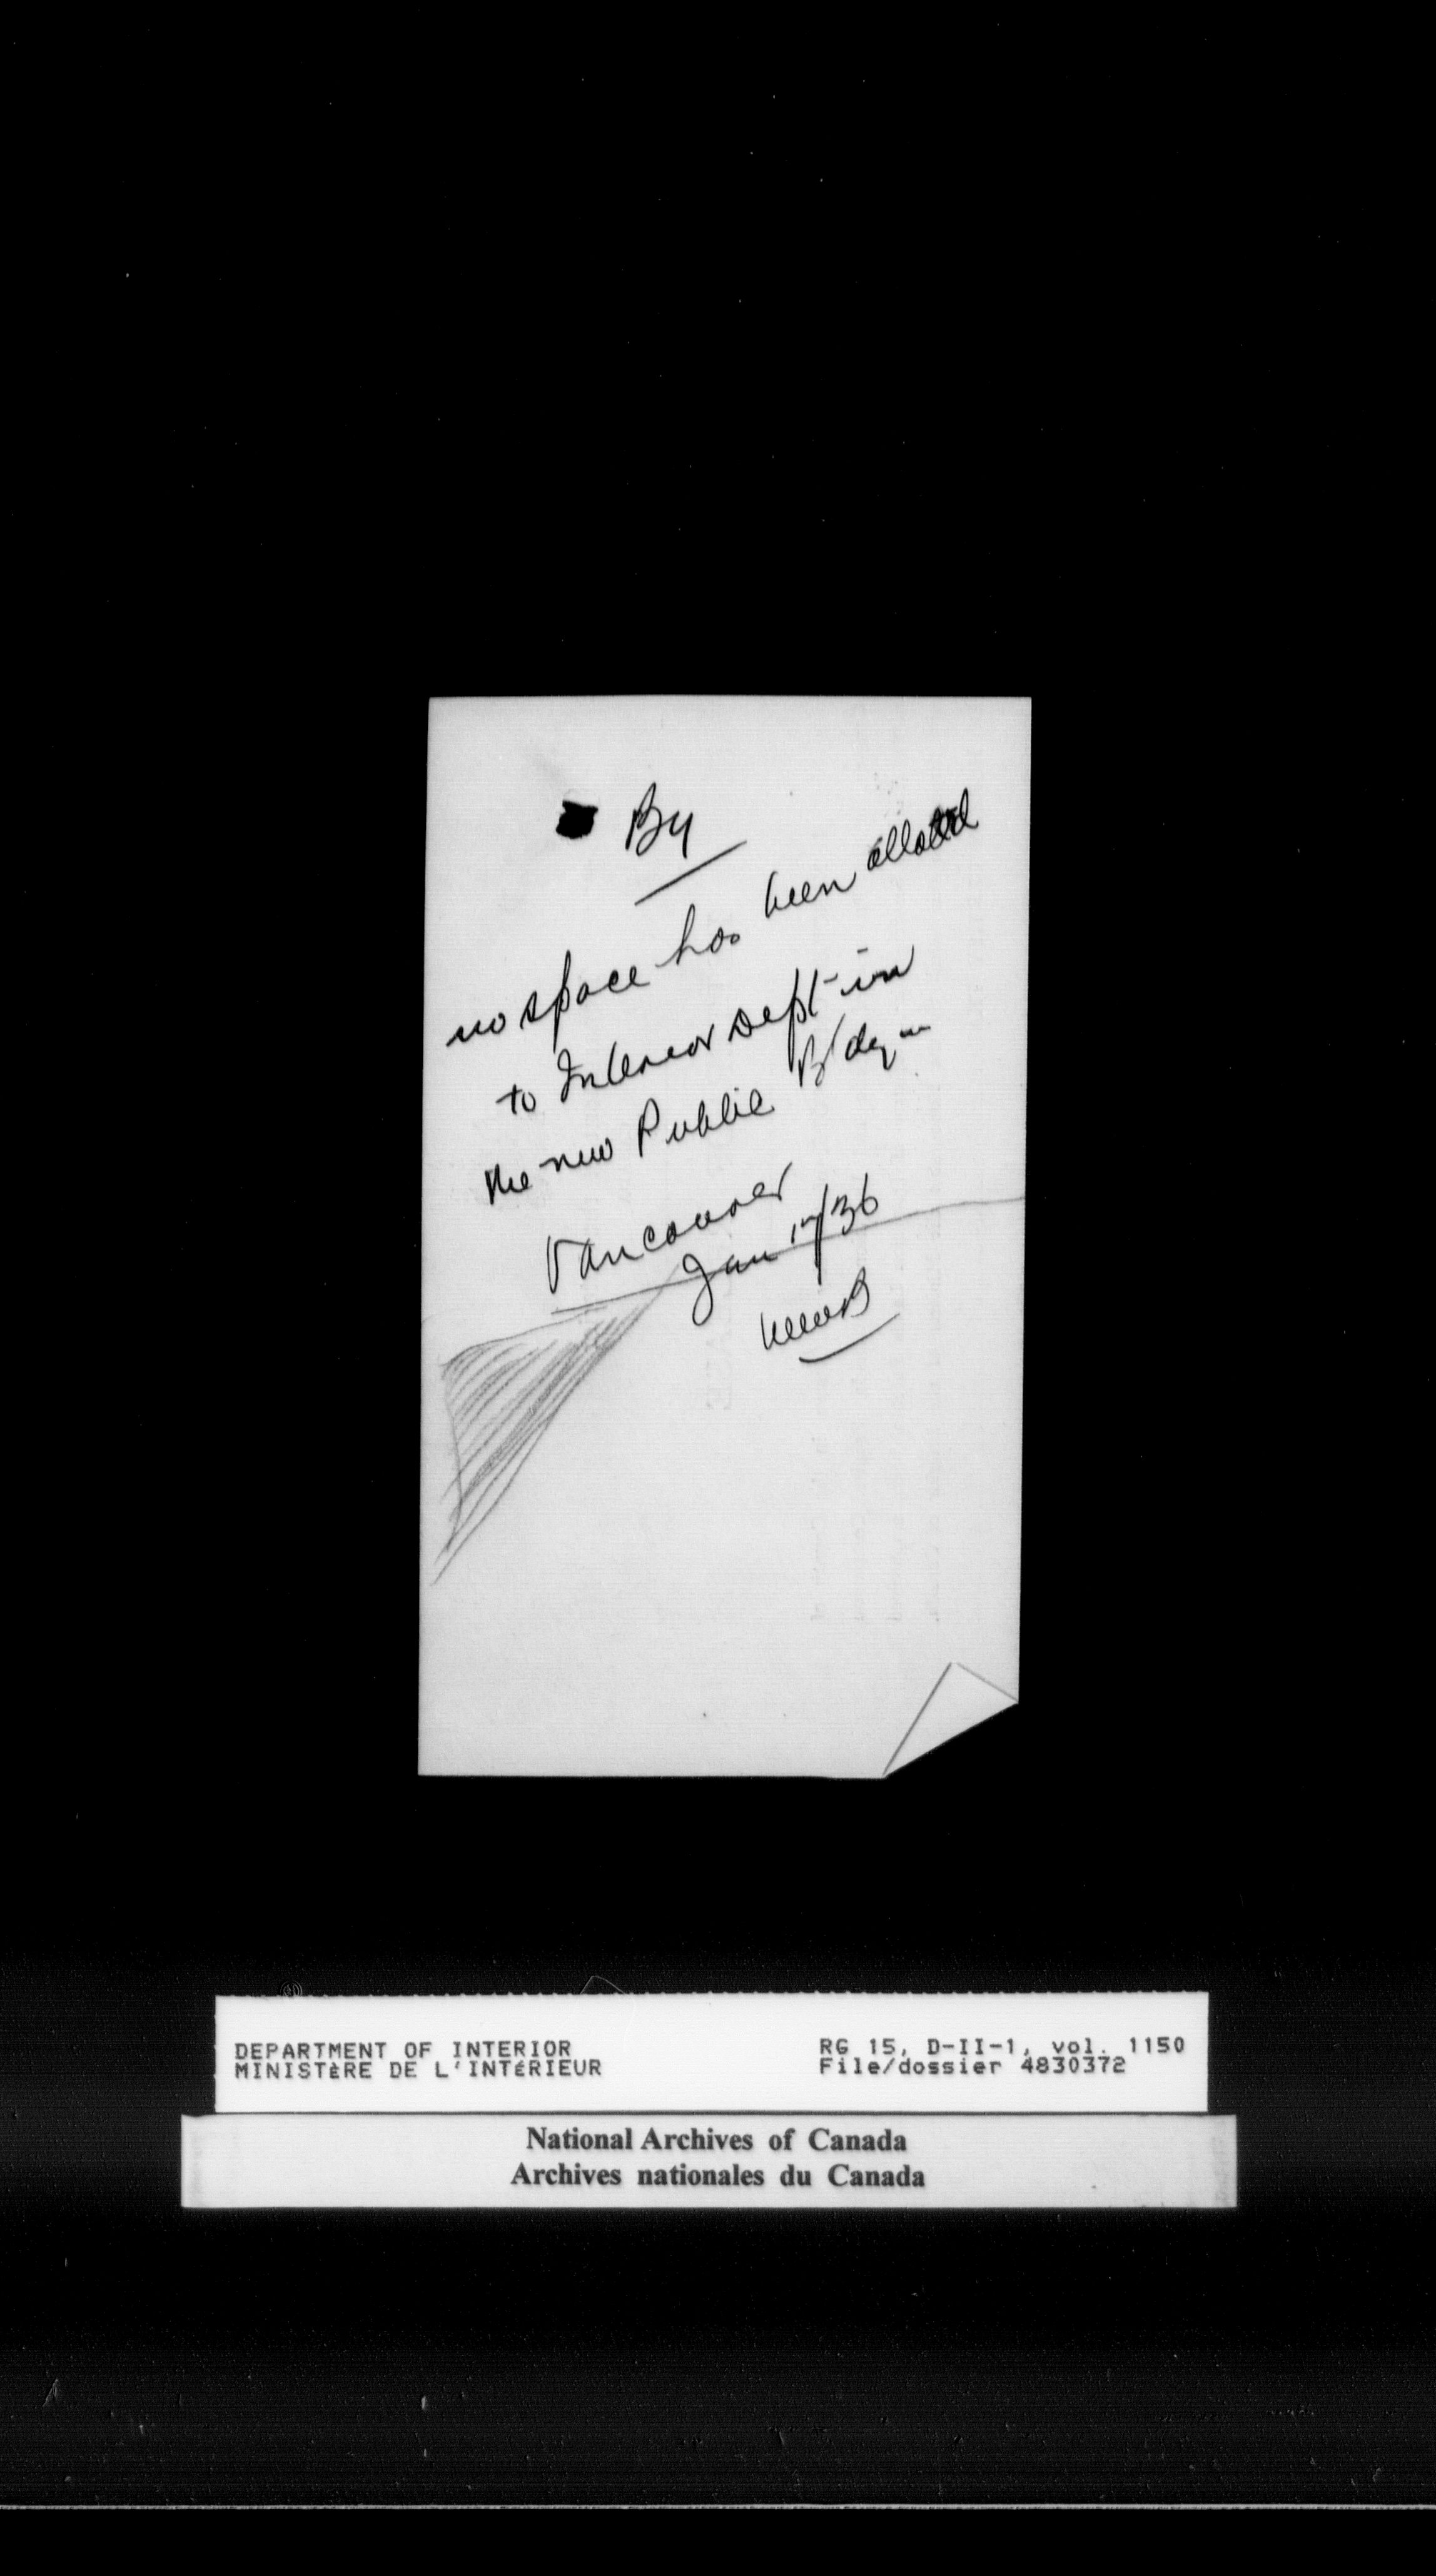 By
no space has been allotted
to Interior Dept in
the new Public B'ldg in
Vancouver
Jan 17/36
DEPARTMENT OF INTERIOR
MINISTÈRE DE L'INTÉRIEUR
RG 15, D-II-1, vol. 1150
File/dossier 4830372
National Archives of Canada
Archives nationales du Canada